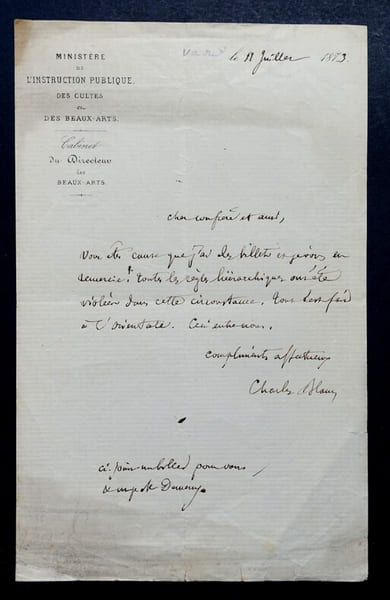 MINISTÈRE
DE
L'INSTRUCTION PUBLIQUE,
DES CULTES
ET
DES BEAUX-ARTS.
Cabinet
du Directeur
des
BEAUX-ARTS.
le 18 Juillet 1873.
cher confrère et ami,
Vous êtes cause que j'ai des billets et je vous en
remercie! toutes les règles hiérarchiques ont été
violées dans cette circonstance. Tout s'est fait
à l'orientale. Ceci entre nous.
compliments affectueux
Charles Blanc
ci-joint un billet pour vous